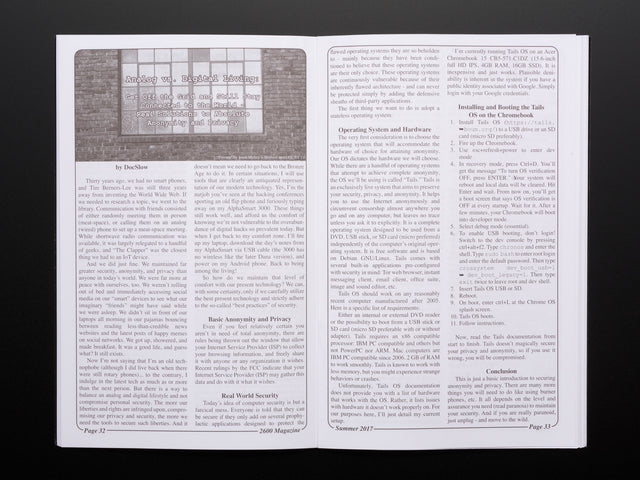 Analog vs. Digital Living:
Get Off the Grid and Still Stay
Connected to the World -
Real Solutions to Absolute
Anonymity and Privacy
by DocSlow
Thirty years ago, we had no smart phones,
and Tim Berners-Lee was still three years
away from inventing the World Wide Web. If
we needed to research a topic, we went to the
library. Communication with friends consisted
of either randomly meeting them in person
(meat-space), or calling them on an analog
(wired) phone to set up a meat-space meeting.
While shortwave radio communication was
available, it was largely relegated to a handful
of geeks, and "The Clapper" was the closest
thing we had to an IoT device.
And we did just fine. We maintained far
greater security, anonymity, and privacy than
anyone in today's world. We were far more at
peace with ourselves, too. We weren't rolling
out of bed and immediately accessing social
media on our "smart" devices to see what our
imaginary "friends" might have said while
we were asleep. We didn't sit in front of our
laptops all morning in our pajamas bouncing
between reading less-than-credible news
websites and the latest posts of happy memes
on social networks. We got up, showered, and
made breakfast. It was a good life, and guess
what? It still exists.
Now I'm not saying that I'm an old tech-
nophobe (although I did live back when there
were still rotary phones)... to the contrary, I
indulge in the latest tech as much as or more
than the next person. But there is a way to
balance an analog and digital lifestyle and not
compromise personal security. The more our
liberties and rights are infringed upon, compro-
mising our privacy and security, the more we
need the tools to secure such liberties. And it
doesn't mean we need to go back to the Bronze
Age to do it. In certain situations, I will use
tools that are clearly an antiquated represen-
tation of our modern technology. Yes, I'm the
nutjob you've seen at the hacking conferences
sporting an old flip phone and furiously typing
away on my AlphaSmart 3000. These things
still work well, and afford us the comfort of
knowing we're not vulnerable to the overabun-
dance of digital hacks so prevalent today. But
when I get back to my comfort zone, I'll fire
up my laptop, download the day's notes from
my AlphaSmart via USB cable (the 3000 has
no wireless like the later Dana version), and
power on my Android phone. Back to being
among the living!
So how do we maintain that level of
comfort with our present technology? We can,
with some certainty, only if we carefully utilize
the best present technology and strictly adhere
to the so-called "best practices" of security.
Basic Anonymity and Privacy
Even if you feel relatively certain you
aren't in need of total anonymity, there are
rules being thrown out the window that allow
your Internet Service Provider (ISP) to collect
your browsing information, and freely share
it with anyone or any organization it wishes.
Recent rulings by the FCC indicate that your
Internet Service Provider (ISP) may gather this
data and do with it what it wishes.
Real World Security
Today's idea of computer security is but a
farcical mess. Everyone is told that they can
be secure if they only add on several prophy-
lactic applications designed to protect the
Page 32
2600 Magazine
flawed operating systems they are so beholden
to - mainly because they have been condi-
tioned to believe that these operating systems
are their only choice. These operating systems
are continuously vulnerable because of their
inherently flawed architecture - and can never
be protected simply by adding the defensive
sheaths of third-party applications.
The first thing we want to do is adopt a
stateless operating system.
Operating System and Hardware
The very first consideration is to choose the
operating system that will accommodate the
hardware of choice for attaining anonymity.
Our OS dictates the hardware we will choose.
While there are a handful of operating systems
that attempt to achieve complete anonymity,
the OS we'll be using is called "Tails." Tails is
an exclusively live system that aims to preserve
your security, privacy, and anonymity. It helps
you to use the Internet anonymously and
circumvent censorship almost anywhere you
go and on any computer, but leaves no trace
unless you ask it to explicitly. It is a complete
operating system designed to be used from a
DVD, USB stick, or SD card (micro preferred)
independently of the computer's original oper-
ating system. It is free software and is based
on Debian GNU/Linux. Tails comes with
several built-in applications pre-configured
with security in mind: Tor web browser, instant
messaging client, email client, office suite,
image and sound editor, etc.
Tails OS should work on any reasonably
recent computer manufactured after 2005.
Here is a specific list of requirements:
Either an internal or external DVD reader
or the possibility to boot from a USB stick or
SD card (micro SD preferable with or without
adapter). Tails requires an x86 compatible
processor: IBM PC compatible and others but
not PowerPC nor ARM. Mac computers are
IBM PC compatible since 2006. 2 GB of RAM
to work smoothly. Tails is known to work with
less memory, but you might experience strange
behaviors or crashes.
Unfortunately, Tails OS documentation
does not provide you with a list of hardware
that works with the OS. Rather, it lists issues
with hardware it doesn't work properly on. For
our purposes here, I'll just detail my current
setup.
I'm currently running Tails OS on an Acer
Chromebook 15 CB5-571-C1DZ (15.6-inch
full HD IPS, 4GB RAM, 16GB SSD). It is
inexpensive and just works. Plausible deni-
ability is inherent in the system if you have a
public identity associated with Google. Simply
login with your Google credentials.
Installing and Booting the Tails
OS on the Chromebook
1. Install Tails OS (https://tails.
➥boum.org/) to a USB drive or an SD
card (micro SD preferable).
2. Fire up the Chromebook.
3. Use esc+refresh+power to enter dev
mode
4. In recovery mode, press Ctrl+D. You'll
get the message "To turn OS verification
OFF, press ENTER." Your system will
reboot and local data will be cleared. Hit
Enter and wait. From now on, you'll get
a boot screen that says OS verification is
OFF at every startup. Wait for it. After a
few minutes, your Chromebook will boot
into developer mode.
5. Select debug mode (essential).
6. To enable USB booting, don't login!
Switch to the dev console by pressing
ctrl+alt+f2. Type chronos and enter the
shell. Type sudo bash to enter root login
and enter the default password. Then type
crossystem dev_boot_usb=1
➥ dev_boot_legacy=1. Then type
exit twice to leave root and dev shell.
7. Insert Tails OS USB or SD.
8. Reboot.
9. On boot, enter ctrl+L at the Chrome OS
splash screen.
10. Tails OS boots.
11. Follow instructions.
Now, read the Tails documentation from
start to finish. Tails doesn't magically secure
your privacy and anonymity, so if you use it
wrong, you will be compromised.
Conclusion
This is just a basic introduction to securing
anonymity and privacy. There are many more
things you will need to do like using burner
phones, etc. It all depends on the level and
assurance you need (read paranoia) to maintain
your security. And if you are really paranoid,
just unplug - and move to the wild.
Summer 2017
Page 33